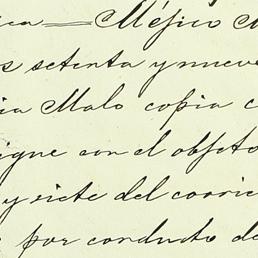 ica — Méjico
s setenta y nueve
ia Malo copia c
igue con el objeto
y siete del corrie
por conducto de